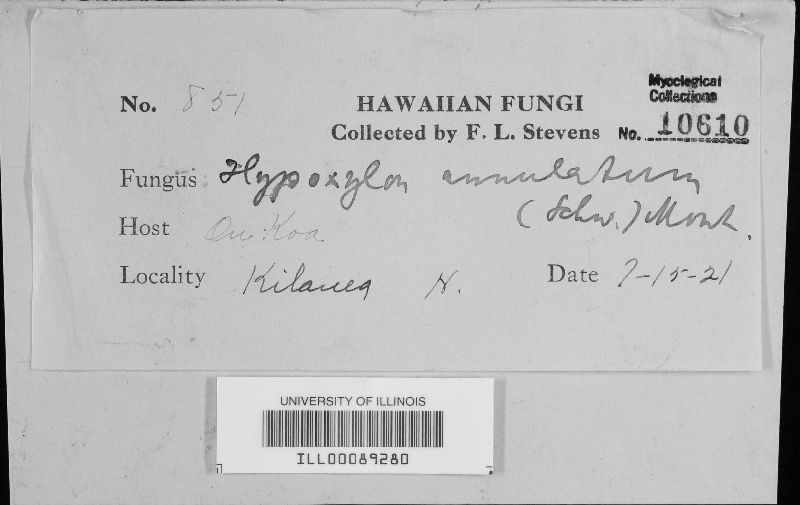 No. 851
HAWAIIAN FUNGI
Collected by F. L. Stevens
Myclogical
Collections
No. 10610
Fungus Hypoxylon annulatum
(Schw.) Mont.
Host On Koa
Locality Kilauea H. Date 7-15-21
UNIVERSITY OF ILLINOIS
ILL00089280